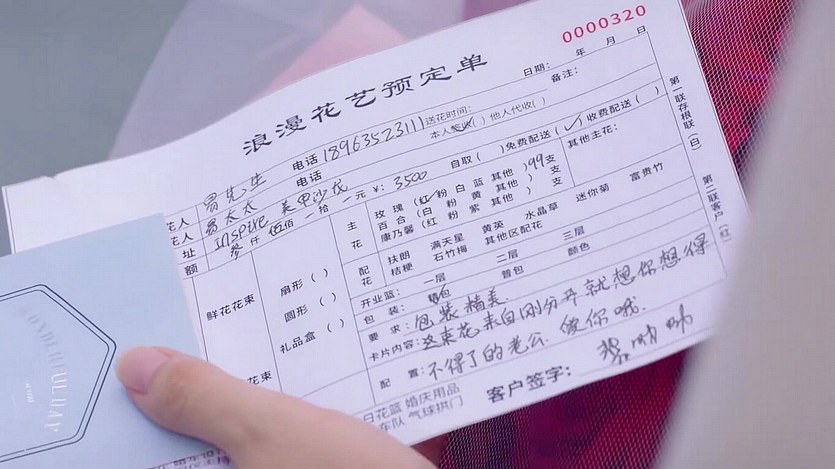 0000320
浪漫花艺预定单
日期： 年 月 日
花人 电话 18963523111 送花时间： 备注：
花人 太太 电话 本人签收( ) 他人代收( )
址 Inspire 美甲沙龙 自取( ) 免费配送(✓) 收费配送( )
额 叁仟伍佰 一拾 一元 ¥: 3500
主花 玫瑰(红 粉 白 蓝 其他 )99支 其他主花：
百合(白 粉 黄 其他 ) 支
康乃馨(红 粉 紫 其他 ) 支
配花 扶朗 满天星 黄英 水晶草 迷你菊 富贵竹
桔梗 石竹梅 其他区配花
鲜花花束 扇形( ) 圆形( ) 礼品盒( )
开业篮： 一层 二层 三层
包装： 普包 颜色
要求：包装精美
卡片内容：这束花来自刚分开就想你想得
不得了的老公 使你哦
配置：
花束
日花篮 婚庆用品
车队 气球拱门
客户签字：
第一联存根联(白) 第二联客户(红)